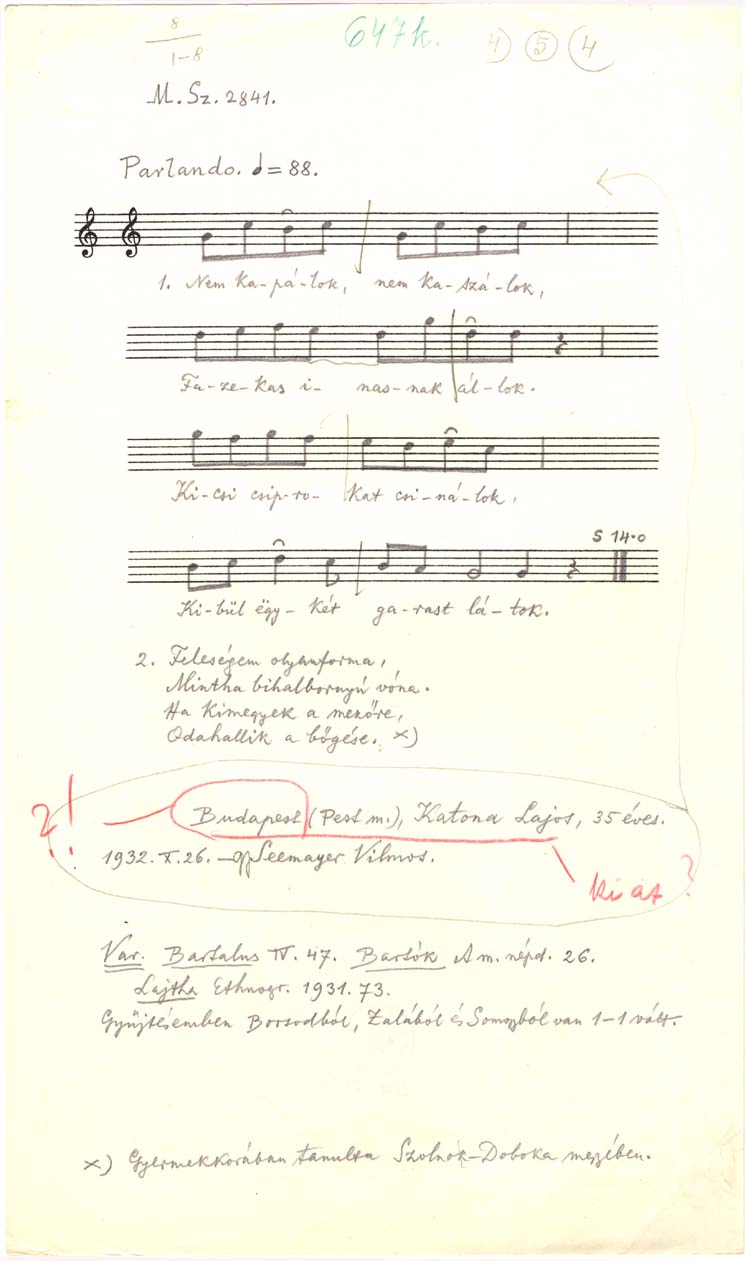 8
1-8
647k.
4) 5 4
M. Sz. 2841.
Parlando. = 88.
1. Nem ka-pá-lok, nem ka-szá-lok,
Fa-ze-kas i- nas-nak ál-lok.
Ki-csi csip-ro- kat csi-ná-lok,
S 14·0
Ki-bül ëgy-két ga-rast lá-tok.
2. Feleségem olyanforma,
Mintha bihalbornyú vóna.
Ha kimegyek a mezőre,
Odahallik a bőgése. ×)
?! Budapest (Pest m.), Katona Lajos, 35 éves.
1932. X. 26. — Seemayer Vilmos.
ki az?
Var. Bartalus IV. 47. Bartók A m. népd. 26.
Lajtha Ethnogr. 1931. 73.
Gyűjtésemben Borsodból, Zalából és Somogyból van 1-1 vált.
×) Gyermekkorában tanulta Szolnok-Doboka megyében.